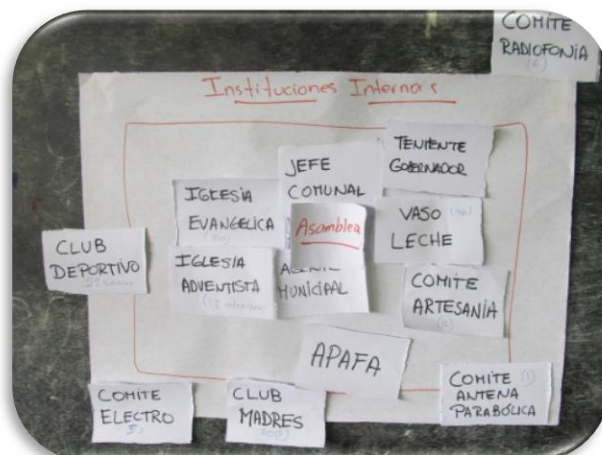 COMITE
RADIOFONÍA
Instituciones Internas
TENIENTE
GOBERNADOR
JEFE
COMUNAL
IGLESIA
EVANGELICA
Asamblea
VASO
LECHE
CLUB
DEPORTIVO
IGLESIA
ADVENTISTA
MUNICIPAL
COMITE
ARTESANÍA
APAFA
COMITE
ANTENA
PARABÓLICA
COMITE
ELECTRO
CLUB
MADRES